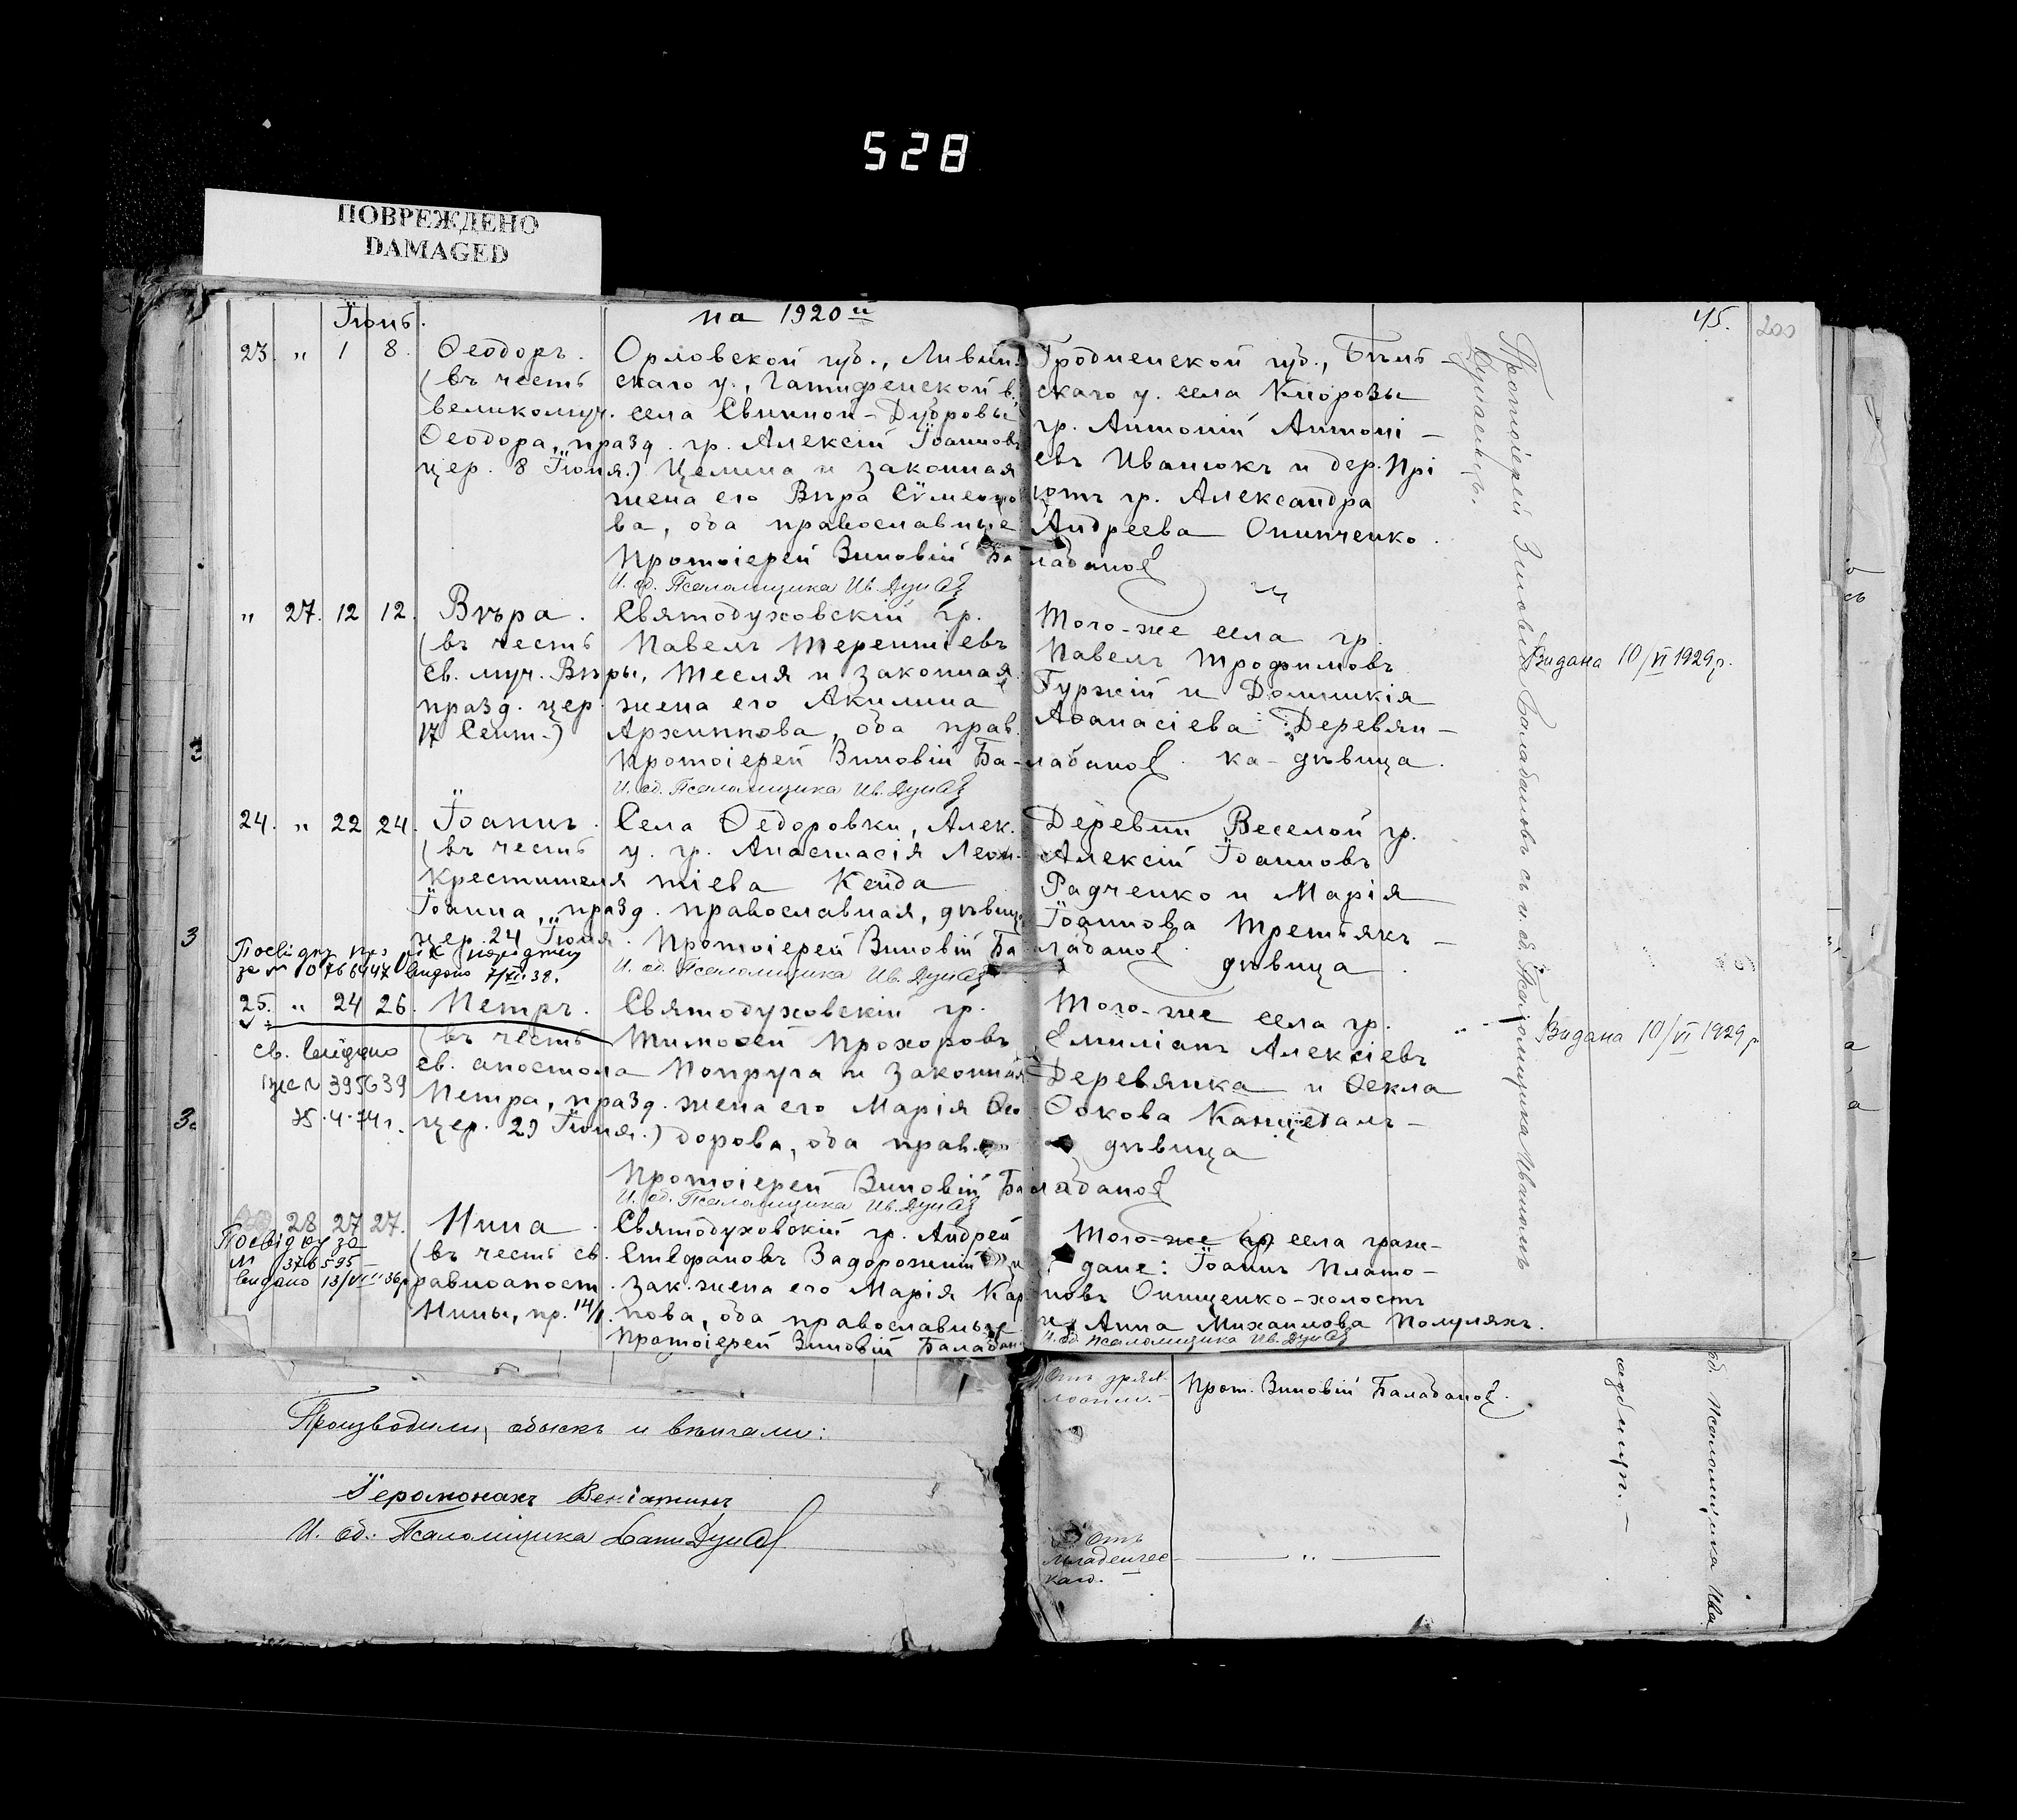 528
ПОВРЕЖДЕНО
DAMAGED
Іюнь.
на 1920 й
45.
200
23. " 1 8. Ѳеодоръ.
(въ честь
великомуч.
Ѳеодора, празд.
цер. 8 Іюня.)
Орловской губ., Ливен.
скаго у.,
села Свинной-Дубровы
гр. Алексій Іоанновъ
Целина и законная
жена его Вѣра Сүмеоно
ва, оба православные
Протоіерей Зиновій Балабановъ
И. об. Псаломщика Ив.
Гродненской губ., Бѣль-
скаго у. села
гр. Антоній Антоні-
евъ Иванюкъ и дер. Прі
ютъ гр. Александра
Андреева Онипченко.
" 27. 12 12. Вѣра.
(въ честь
св. муч. Вѣры,
празд. цер.
17 Сент.)
Святодуховскій гр.
Павелъ Терентіевъ
Тесля и законная
жена его Акилина
Архиппова, оба прав.
Протоіерей Зиновій Балабановъ.
И. об. Псаломщика Ив.
Того-же села гр.
Павелъ Трофимовъ
Гуржій и Домникія
Аѳанасіева Деревян-
ка - дѣвица.
Видана 10/VI 1929 р.
24. " 22 24. Іоаннъ.
(въ честь
Крестителя
Іоанна, празд.
цер. 24 Іюня.
Села Ѳедоровки, Алек.
у. гр. Анастасія Леон-
тіева Кейда
православная, дѣвица
Протоіерей Зиновій Балабановъ.
И. об. Псаломщика Ив.
Деревни Веселой гр.
Алексій Іоанновъ
Радченко и Марія
Іоаннова Третьякъ -
дѣвица.
видано 7/XI.38.
25. " 24 26. Петръ.
(въ честь
св. апостола
Петра, празд.
цер. 29 Іюня.)
Святодуховскій гр.
Тимоѳей Прохоровъ
Попруга и законная
жена его Марія Ѳео
дорова, оба прав.
Протоіерей Зиновій Балабановъ
И. об. Псаломщика Ив.
Того-же села гр.
Емиліанъ Алексіевъ
Деревянка и Ѳекла
Фокова
дѣвица
Видана 10/VI 1929 р
св. видано
395639
25.4.74 г.
28 27 27. Нина.
(въ честь св.
равноапост.
Нины, пр. 14/I.
Святодуховскій гр. Андрей
Стефановъ Задорожній и
зак. жена его Марія Кар
пова, оба православные
Протоіерей Зиновій Балабан
Того-же села граж-
дане: Іоаннъ Плато-
новъ Онищенко-холостъ
и Анна Михаилова Полуляхъ.
И. об. Псаломщика Ив.
Посвідку за
№ 376595
видано 13/VIII 36 р
Протоіерей Зиновій Балабановъ съ и. об. Псаломщика Иваномъ
Производили обыскъ и вѣнчали:
Іеромонахъ Веніаминъ
И. об. Псаломщика
Прот. Зиновій Балабановъ.
Отъ
младенчес-
каго.
об. Псаломщика Ива